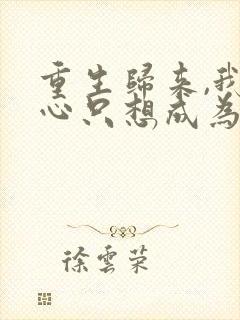 重生歸來,我
心只想成為
徐雲榮